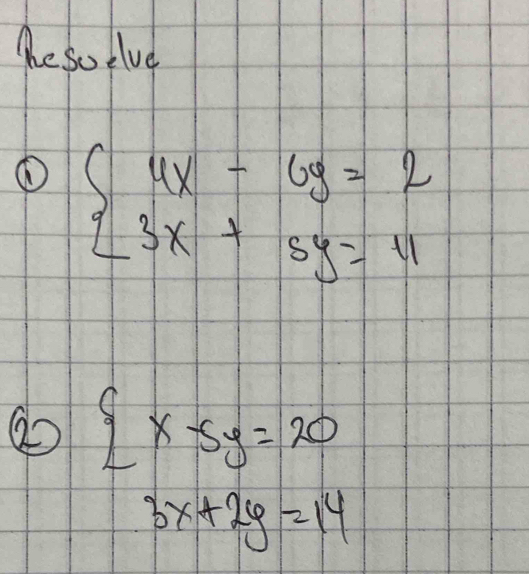 Resuelve
① { 4x - 6y = 2
3x + 5y = 11
② { x - 5y = 20
3x + 2y = 14